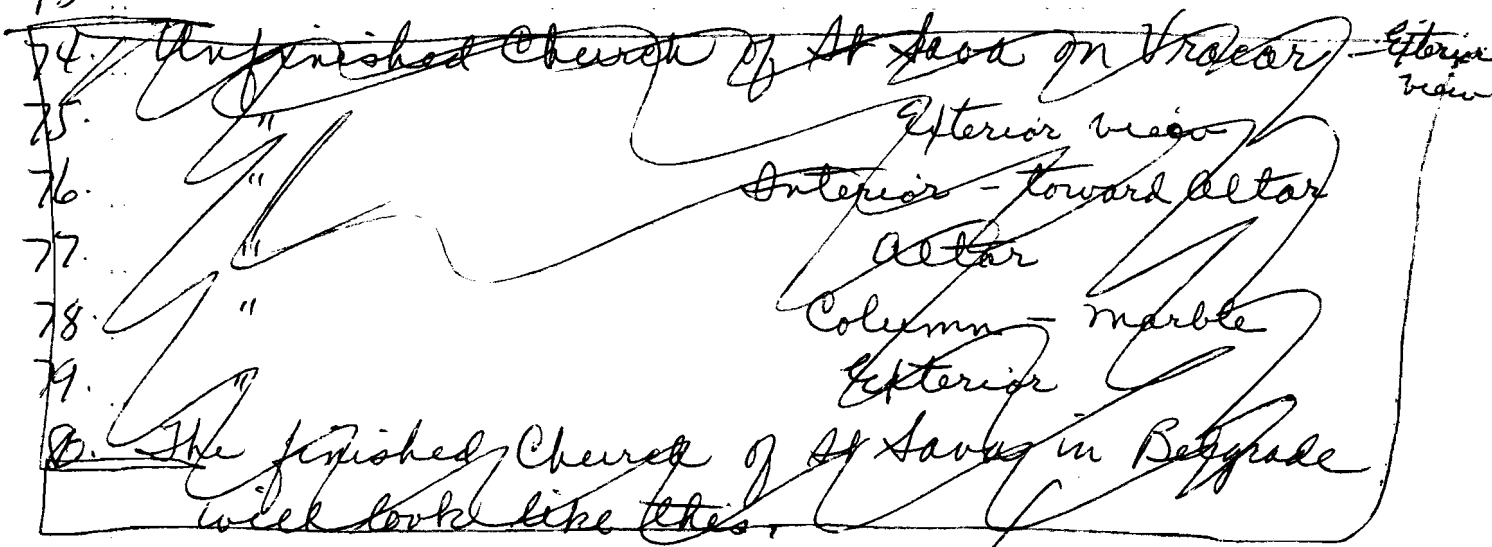 74. Unfinished Church of St Sava on Vracar - Exterior view
75. " Exterior view
76. " Interior - toward Altar
77. " Altar
78. " Column - marble
79. " Exterior
80. The finished Church of St Sava in Belgrade
will look like this.